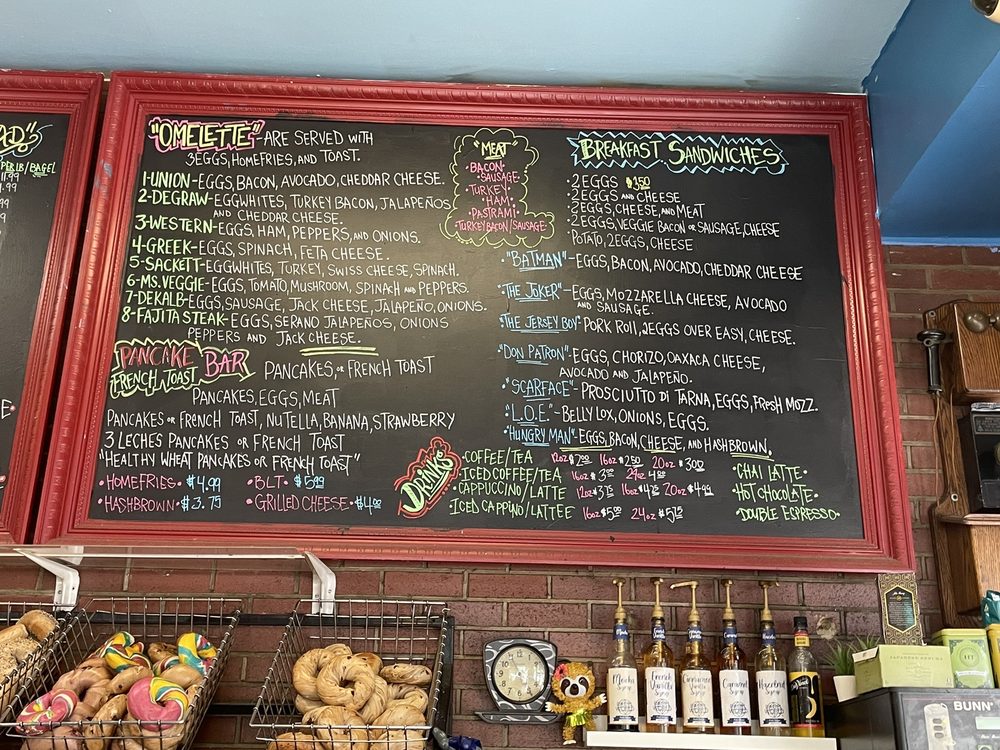 PER LB/BAGEL
"OMELETTE" - ARE SERVED WITH
3EGGS, HOMEFRIES, AND TOAST.
1-UNION-EGGS, BACON, AVOCADO, CHEDDAR CHEESE.
2-DEGRAW-EGGWHITES, TURKEY BACON, JALAPEÑOS
AND CHEDDAR CHEESE.
3-WESTERN-EGGS, HAM, PEPPERS, AND ONIONS.
4-GREEK-EGGS, SPINACH, FETA CHEESE.
5-SACKETT-EGGWHITES, TURKEY, SWISS CHEESE, SPINACH.
6-MS. VEGGIE-EGGS, TOMATO, MUSHROOM, SPINACH AND PEPPERS.
7-DEKALB-EGGS, SAUSAGE, JACK CHEESE, JALAPEÑO, ONIONS.
8-FAJITA STEAK-EGGS, SERANO JALAPEÑOS, ONIONS
PEPPERS AND JACK CHEESE.
PANCAKE BAR
FRENCH TOAST
PANCAKES, OR FRENCH TOAST
PANCAKES, EGGS, MEAT
PANCAKES OR FRENCH TOAST, NUTELLA, BANANA, STRAWBERRY
3 LECHES PANCAKES OR FRENCH TOAST
"HEALTHY WHEAT PANCAKES OR FRENCH TOAST"
•HOMEFRIES• $4.99
•BLT• $5.99
•HASHBROWN• $3.75
•GRILLED CHEESE•
"MEAT
•BACON•
•SAUSAGE•
TURKEY•
•HAM•
PASTRAMI•
•TURKEY BACON/SAUSAGE
BREAKFAST SANDWICHES
2 EGGS
2 EGGS AND CHEESE
2 EGGS, CHEESE, AND MEAT
2 EGGS, VEGGIE BACON OR SAUSAGE, CHEESE
POTATO, 2EGGS, CHEESE
•"BATMAN"-EGGS, BACON, AVOCADO, CHEDDAR CHEESE
•"THE JOKER"-EGGS, MOZZARELLA CHEESE, AVOCADO
AND SAUSAGE.
"THE JERSEY BOY" PORK ROLL, 2EGGS OVER EASY, CHEESE.
"DON PATRON"-EGGS, CHORIZO, OAXACA CHEESE,
AVOCADO AND JALAPEÑO.
•"SCARFACE"-PROSCIUTTO DI TARNA, EGGS, FRESH MOZZ.
"L.O.E."-BELLY LOX, ONIONS, EGGS.
"HUNGRY MAN"-EGGS, BACON, CHEESE, AND HASHBROWN.
DRINKS
•COFFEE/TEA 12oz $2.00 16oz $2.50 20oz $3.00
•ICED COFFEE/TEA 16oz 24oz
•CAPPUCCINO/LATTE 12oz 16oz 20oz $4.99
•ICED CAPPINO/LATTEE 16oz 24oz
CHAI LATTE•
HOT CHOCOLATE•
•DOUBLE ESPRESSO•
Mocha
Syrup
French
Vanilla
Syrup
Cinnamon
Vanilla
Syrup
Caramel
Syrup
Hazelnut
Syrup
BUNN